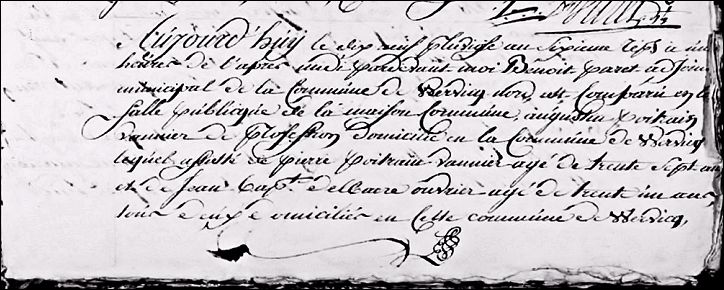 Aujourd'huy le dix neuf pluviose an sixieme Rep. a
heures de l'apres midi pardevant moi Benoit paret adjoin
municipal de la Commune de Wervicq nord, est Comparu en la
salle publique de la maison Commune, augustin poitrain
vannier de profession domicilié en la Commune de Wervicq
lequel assisté de pierre poitrain vannier agé de trente sept ans
et de Jean Bapt. delbaere ouvrier agé de trente un ans
tous deux domiciliés en Cette commune de Wervicq,